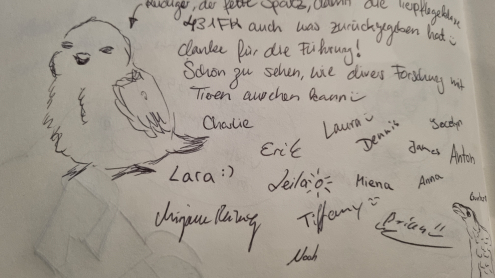 Rüdiger, der fette Spatz, damit die Tierpflegeklasse
431AFK auch was zurückgegeben hat :)
danke für die Führung!
Schön zu sehen, wie divers Forschung mit
Tieren ausehen kann :)
Charlie
Laura :)
Dennis
Jocelyn
Eric
James
Anton
Lara :)
Leila
Hiena
Anna
Tiffany :)
Noah